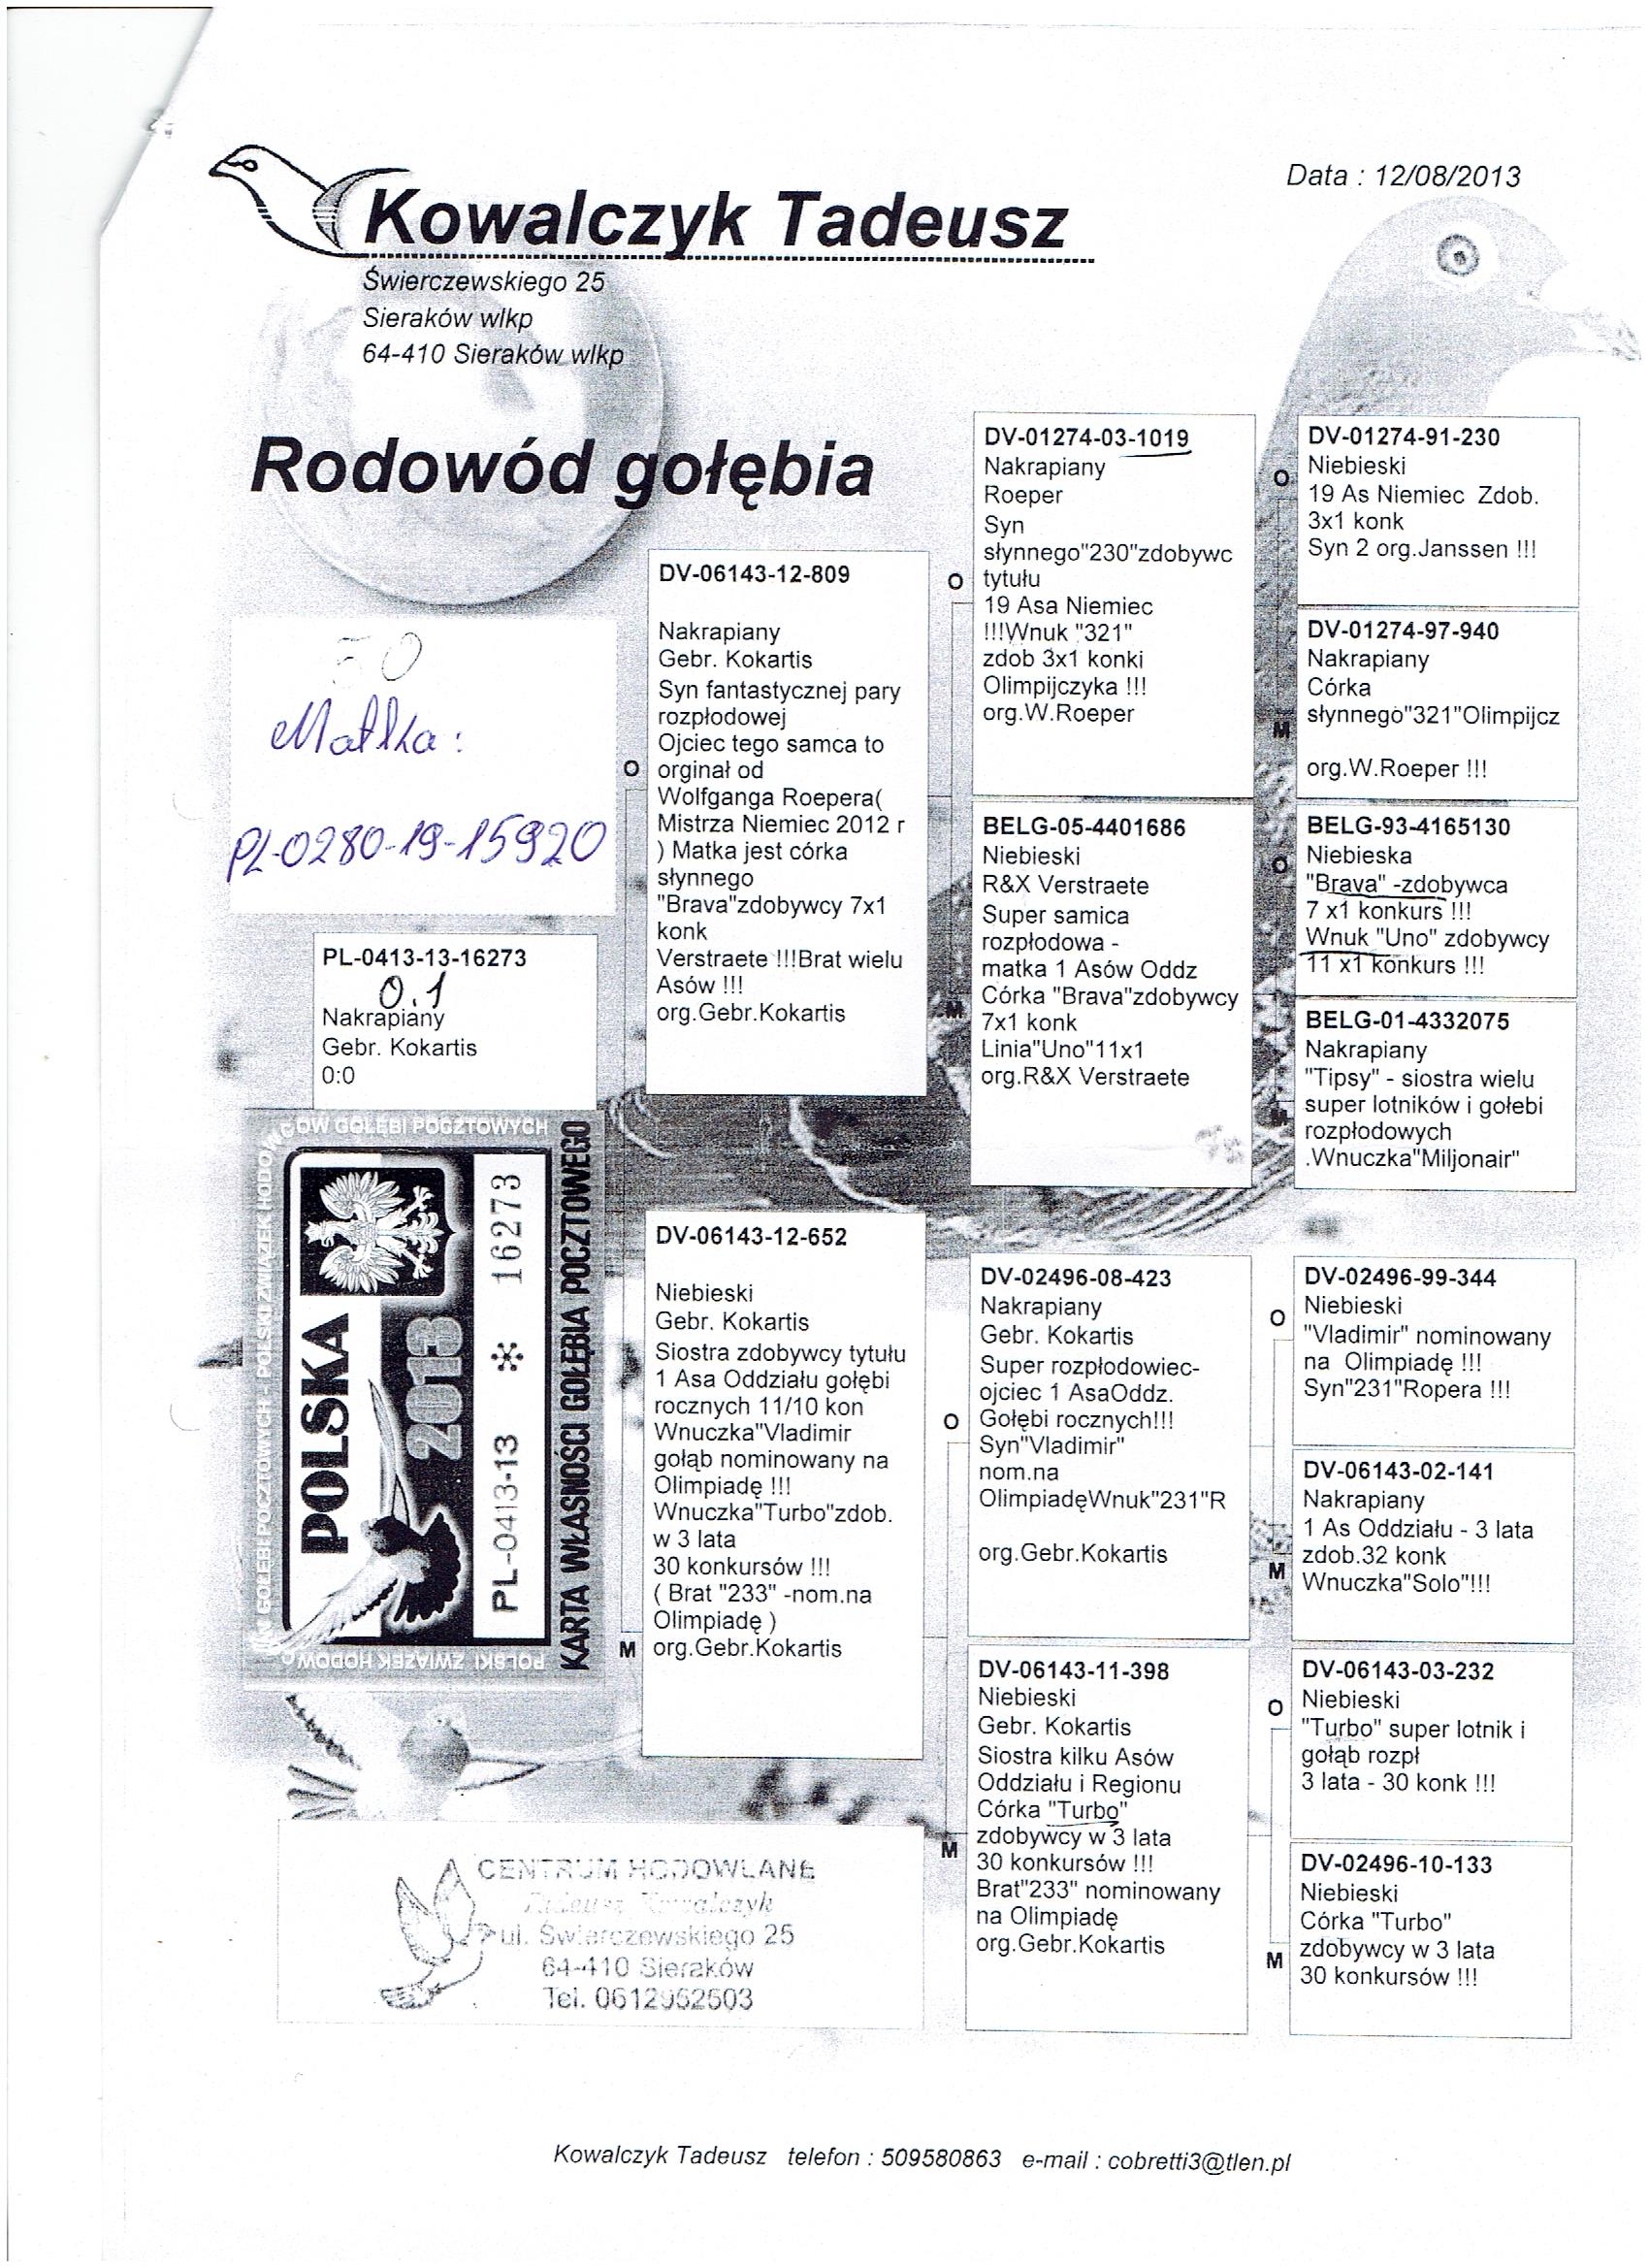 Data : 12/08/2013
Kowalczyk Tadeusz
Świerczewskiego 25
Sieraków wlkp
64-410 Sieraków wlkp
Rodowód gołębia
Matka:
PL-0280-19-15920
PL-0413-13-16273
0.1
Nakrapiany
Gebr. Kokartis
0:0
POLSKI ZWIĄZEK HODOWCÓW GOŁĘBI POCZTOWYCH
POLSKA
2013
PL-0413-13 * 16273
KARTA WŁASNOŚCI GOŁĘBIA POCZTOWEGO
O
DV-06143-12-809
Nakrapiany
Gebr. Kokartis
Syn fantastycznej pary
rozpłodowej
Ojciec tego samca to
orginał od
Wolfganga Roepera(
Mistrza Niemiec 2012 r
) Matka jest córka
słynnego
"Brava"zdobywcy 7x1
konk
Verstraete !!!Brat wielu
Asów !!!
org.Gebr.Kokartis
M
DV-06143-12-652
Niebieski
Gebr. Kokartis
Siostra zdobywcy tytułu
1 Asa Oddziału gołębi
rocznych 11/10 kon
Wnuczka"Vladimir
gołąb nominowany na
Olimpiadę !!!
Wnuczka"Turbo"zdob.
w 3 lata
30 konkursów !!!
( Brat "233" -nom.na
Olimpiadę )
org.Gebr.Kokartis
O
DV-01274-03-1019
Nakrapiany
Roeper
Syn
słynnego"230"zdobywc
tytułu
19 Asa Niemiec
!!!Wnuk "321"
zdob 3x1 konki
Olimpijczyka !!!
org.W.Roeper
M
BELG-05-4401686
Niebieski
R&X Verstraete
Super samica
rozpłodowa -
matka 1 Asów Oddz
Córka "Brava"zdobywcy
7x1 konk
Linia"Uno"11x1
org.R&X Verstraete
O
DV-02496-08-423
Nakrapiany
Gebr. Kokartis
Super rozpłodowiec-
ojciec 1 AsaOddz.
Gołębi rocznych!!!
Syn"Vladimir"
nom.na
OlimpiadęWnuk"231"R
org.Gebr.Kokartis
M
DV-06143-11-398
Niebieski
Gebr. Kokartis
Siostra kilku Asów
Oddziału i Regionu
Córka "Turbo"
zdobywcy w 3 lata
30 konkursów !!!
Brat"233" nominowany
na Olimpiadę
org.Gebr.Kokartis
O
DV-01274-91-230
Niebieski
19 As Niemiec Zdob.
3x1 konk
Syn 2 org.Janssen !!!
M
DV-01274-97-940
Nakrapiany
Córka
słynnego"321"Olimpijcz
org.W.Roeper !!!
O
BELG-93-4165130
Niebieska
"Brava" -zdobywca
7 x1 konkurs !!!
Wnuk "Uno" zdobywcy
11 x1 konkurs !!!
M
BELG-01-4332075
Nakrapiany
"Tipsy" - siostra wielu
super lotników i gołebi
rozpłodowych
.Wnuczka"Miljonair"
O
DV-02496-99-344
Niebieski
"Vladimir" nominowany
na Olimpiadę !!!
Syn"231"Ropera !!!
M
DV-06143-02-141
Nakrapiany
1 As Oddziału - 3 lata
zdob.32 konk
Wnuczka"Solo"!!!
O
DV-06143-03-232
Niebieski
"Turbo" super lotnik i
gołąb rozpł
3 lata - 30 konk !!!
M
DV-02496-10-133
Niebieski
Córka "Turbo"
zdobywcy w 3 lata
30 konkursów !!!
CENTRUM HODOWLANE
Tadeusz Kowalczyk
ul. Świerczewskiego 25
64-410 Sieraków
Tel. 0612952503
Kowalczyk Tadeusz telefon : 509580863 e-mail : cobretti3@tlen.pl